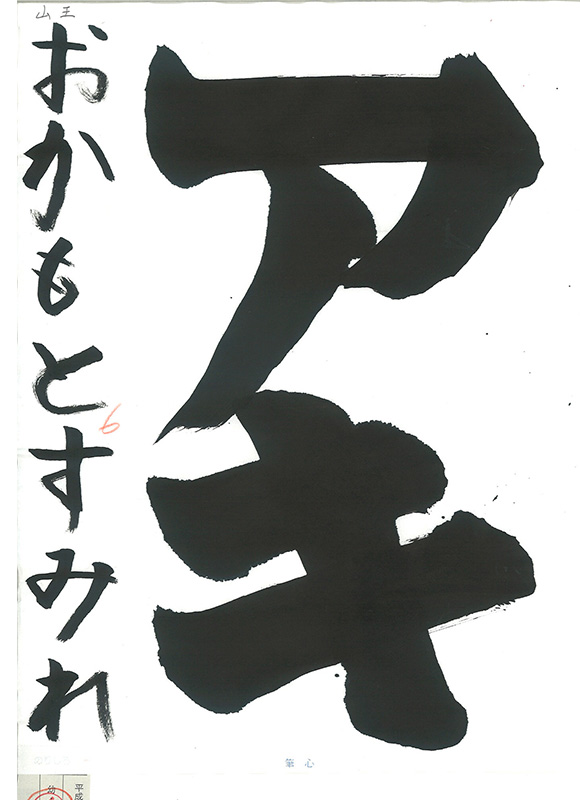 アキ
山王
おかもとすみれ
6
筆心
平成
幼